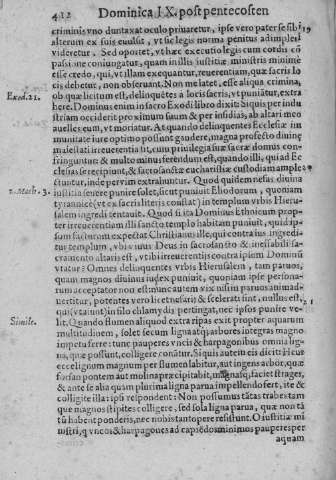 412 Dominica IX. post pentecosten
criminis vno duntaxat oculo priuaretur, ipse vero pater se sibi 19
alterum ex suis euulsit, vt sic legis norma penitus adimpleri
videretur. Sed oportet, vt hæc executio legis cum cordis cō
passione coniungatur, quam in illis iustitiæ ministris minime
esse credo, qui, vt illam exequantur, reuerentiam, quæ sacris lo
cis debetur, non obseruant. Non me latet, esse aliqua crimina,
Exod. 21. ob quæ licitum est, delinquētes à locis sacris, vt puniātur, extra
here. Dominus enim in sacro Exodi libro dixit: Siquis per indu
striam occiderit proximum suum & per insidias, ab altari meo
auelles eum, vt moriatur. At quando delinquentes Ecclesiæ im
munitate iure optimo possunt gaudere, magna profecto diuinę
maiestati irreuerentia fit, cum priuilegia suæ sacræ domus con-
fringuntur: & multo minus ferēdum est, quando illi, qui ad Ec
clesias se recipiunt, & sacrosanctæ eucharistiæ custodiam ample
ctuntur, inde per vim extrahuntur. Quod quidem nefas diuina
2. Mach. 3. iustitia seuere punire solet, sicut puniuit Eliodorum, quoniam
tyrannice (vt ex sacris literis constat) in templum vrbis Hieru-
salem ingredi tentauit. Quod si ita Dominus Ethnicum prop-
ter irreuerentiam illi sancto templo habitam puniuit, quid ip-
sum facturum expectat Christianus ille, qui contra ius ingredi-
tur templum, vbi viuus Deus in sacrosancto & ineffabili sa-
cramento altaris est, vt ibi irreuerentis contra ipsum Dominū
vtatur? Omnes delinquentes vrbis Hierusalem, tam paruos,
quam magnos diuinus iudex puniat, quoniam ipse persona-
rum acceptator non est: nunc autem vix nisi in paruos animad-
uertitur, potentes vero licet nefarij & scelerati sint, nullus est, 21
qui (vt aiunt) in filo chlamydis pertingat, nec ipsos punire ve-
Simile. lit. Quando flumen aliquod extra ripas exit propter aquarum
multitudinem, solet secum ligna atq; arbores integras magno
impetu ferre: tunc pauperes vncis & harpagonibus omnia lig-
na, quæ possunt, colligere conātur. Si quis autem eis dicit: Heus
ecce lignum magnum per flumen labitur, aut ingens arbor, quæ
forsan pontem aut molina præcipitabit, magnasq; faciet strages,
& ante se alia quam plurima ligna parua impellendo fert, ite &
colligite illa: ipsi respondent: Non possumus tātas trabes tam
que magnos stipites colligere, sed sola ligna parua, quæ non tā
tū habent ponderis, nec nobis tantopere resistunt. O iustitiæ mi
nistri, q vncos & harpagones ad capiēdos minimos pauperes per
aquam